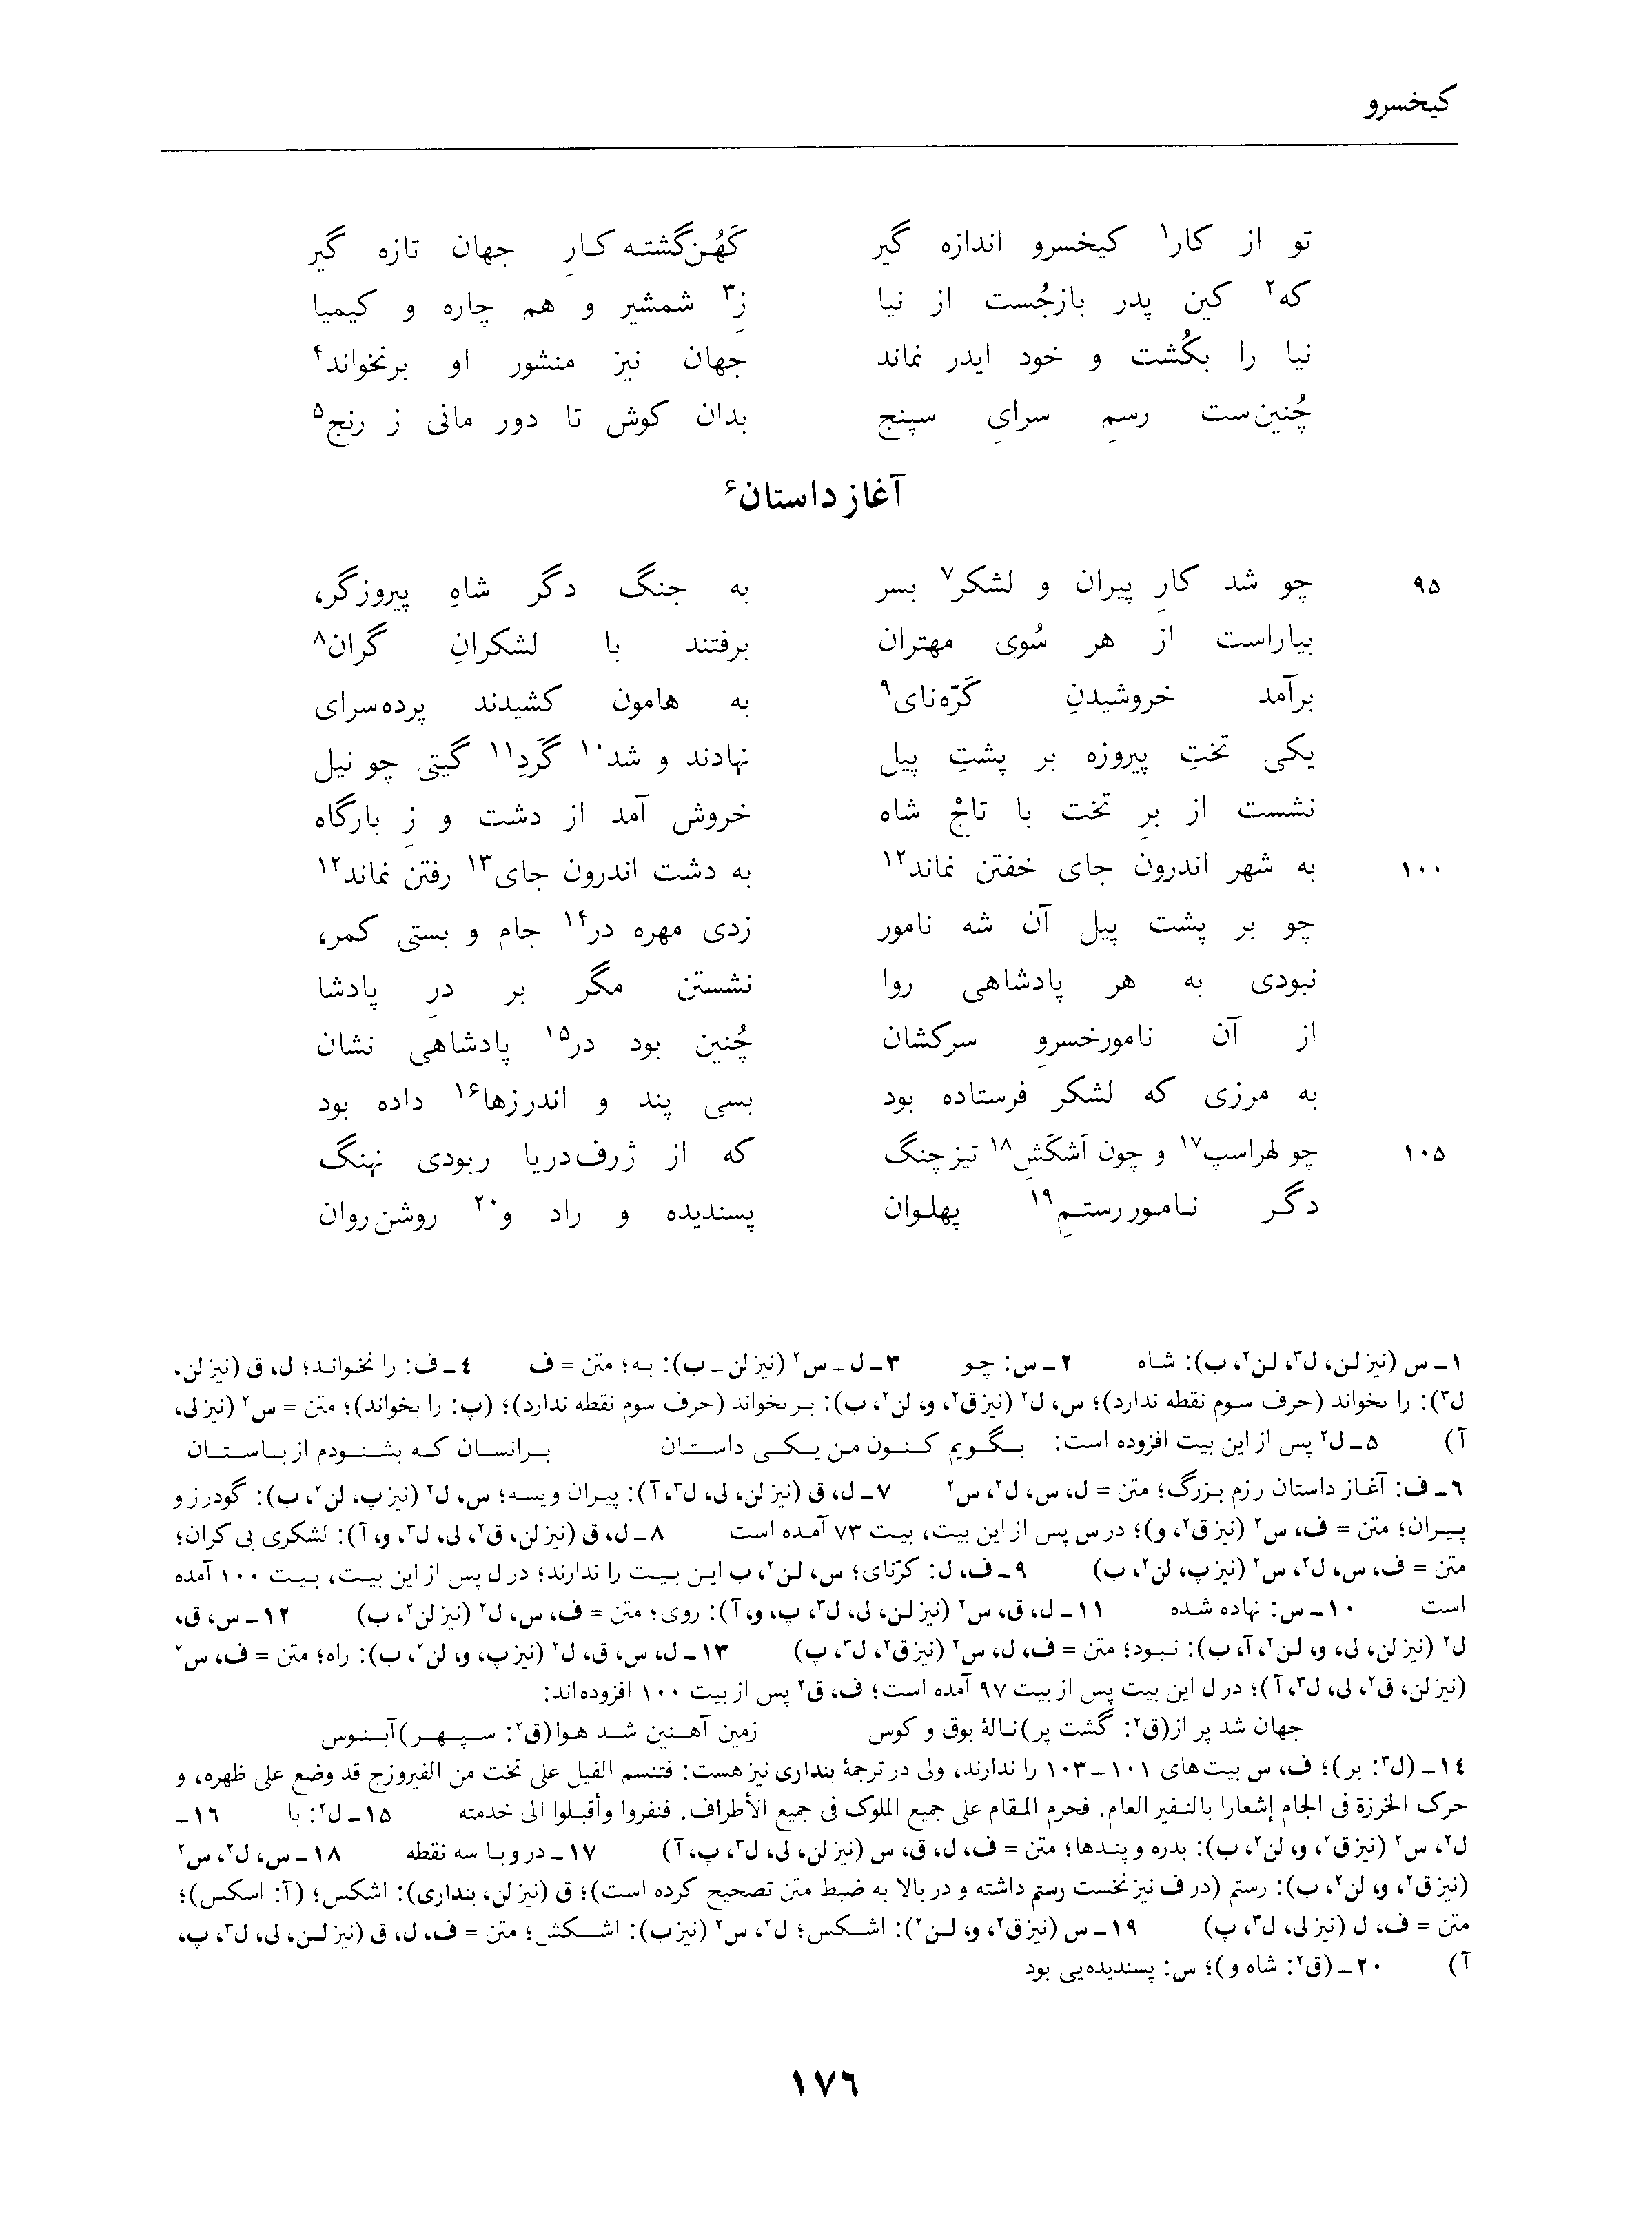 کیخسرو
تو از کار۱ کیخسرو اندازه گیر کَهُن‌گشته کارِ جهان تازه گیر
که۲ کین پدر بازجُست از نیا زِ۳ شمشیر و هم چاره و کیمیا
نیا را بکُشت و خود ایدر نماند جهان نیز منشور او برنخواند۴
چُنین‌ست رسمِ سرایِ سپنج بدان کوش تا دور مانی ز رنج۵
آغاز داستان۶
۹۵ چو شد کارِ پیران و لشکر۷ بسر به جنگ دگر شاهِ پیروزگر،
بیاراست از هر سُوی مهتران برفتند با لشکرانِ گران۸
برآمد خروشیدنِ کَرّه‌نای۹ به هامون کشیدند پرده‌سرای
یکی تختِ پیروزه بر پشتِ پیل نهادند و شد۱۰ گَردِ۱۱ گیتی چو نیل
نشست از برِ تخت با تاجْ شاه خروش آمد از دشت و زِ بارگاه
۱۰۰ به شهر اندرون جای خفتن نماند۱۲ به دشت اندرون جای۱۳ رفتن نماند۱۲
چو بر پشت پیل آن شه نامور زدی مهره در۱۴ جام و بستی کمر،
نبودی به هر پادشاهی روا نشستن مگر بر درِ پادشا
از آن نامورخسروِ سرکشان چُنین بود در۱۵ پادشاهی نشان
به مرزی که لشکر فرستاده بود بسی پند و اندرزها۱۶ داده بود
۱۰۵ چو لهراسپ۱۷ و چون اَشکَشِ۱۸ تیزچنگ که از ژرف‌دریا ربودی نهنگ
دگر نامور رستمِ۱۹ پهلوان پسندیده و راد و۲۰ روشن‌روان
۱ـ س (نیز لن، ل۳، لن۲، ب): شاه ۲ـ س: چو ۳ـ ل ـ س۲ (نیز لن ـ ب): به؛ متن = ف ۴ـ ف: را نخواند؛ ل، ق (نیز لن،
ل۳): را ىخواند (حرف سوم نقطه ندارد)؛ س، ل۲ (نیز ق۲، و، لن۲، ب): بر ىخواند (حرف سوم نقطه ندارد)؛ (پ: را بخواند)؛ متن = س۲ (نیز لی،
آ) ۵ـ ل۲ پس از این بیت افزوده است: بگویم کنون من یکی داستان برانسان که بشنودم از باستان
۶ـ ف: آغاز داستان رزم بزرگ؛ متن = ل، س، ل۲، س۲ ۷ـ ل، ق (نیز لن، لی، ل۳، آ): پیران ویسه؛ س، ل۲ (نیز پ، لن۲، ب): گودرز و
پیران؛ متن = ف، س۲ (نیز ق۲، و)؛ در س پس از این بیت، بیت ۷۳ آمده است ۸ـ ل، ق (نیز لن، ق۲، لی، ل۳، و، آ): لشکری بی کران؛
متن = ف، س، ل۲، س۲ (نیز پ، لن۲، ب) ۹ـ ف، ل: کرّنای؛ س، لن۲، ب این بیت را ندارند؛ در ل پس از این بیت، بیت ۱۰۰ آمده
است ۱۰ـ س: نهاده شده ۱۱ـ ل، ق، س۲ (نیز لن، لی، ل۳، پ، و، آ): روی؛ متن = ف، س، ل۲ (نیز لن۲، ب) ۱۲ـ س، ق،
ل۲ (نیز لن، لی، و، لن۲، آ، ب): نبود؛ متن = ف، ل، س۲ (نیز ق۲، ل۳، پ) ۱۳ـ ل، س، ق، ل۲ (نیز پ، و، لن۲، ب): راه؛ متن = ف، س۲
(نیز لن، ق۲، لی، ل۳، آ)؛ در ل این بیت پس از بیت ۹۷ آمده است؛ ف، ق۲ پس از بیت ۱۰۰ افزوده‌اند:
جهان شد پر از (ق۲: گشت پر) نالهٔ بوق و کوس زمین آهنین شد هوا (ق۲: سپهر) آبنوس
۱۴ـ (ل۳: بر)؛ ف، س بیت‌های ۱۰۱ ـ ۱۰۳ را ندارند، ولی در ترجمهٔ بنداری نیز هست: فتنسم الفیل علی تخت من الفیروزج قد وضع علی ظهره، و
حرک الخرزة فی الجام إشعارا بالنفیر العام. فحرم المقام علی جمیع الملوک فی جمیع الأطراف. فنفروا وأقبلوا الی خدمته ۱۵ـ ل۲: با ۱۶ـ
ل۲، س۲ (نیز ق۲، و، لن۲، ب): بدره و پندها؛ متن = ف، ل، ق، س (نیز لن، لی، ل۳، پ، آ) ۱۷ـ در و با سه نقطه ۱۸ـ س، ل۲، س۲
(نیز ق۲، و، لن۲، ب): رستم (در ف نیز نخست رستم داشته و در بالا به ضبط متن تصحیح کرده است)؛ ق (نیز لن، بنداری): اشکس؛ (آ: اسکس)؛
متن = ف، ل (نیز لی، ل۳، پ) ۱۹ـ س (نیز ق۲، و، لن۲): اشکس؛ ل۲، س۲ (نیز ب): اشکش؛ متن = ف، ل، ق (نیز لن، لی، ل۳، پ،
آ) ۲۰ـ (ق۲: شاه و)؛ س: پسندیده‌یی بود
۱۷۶